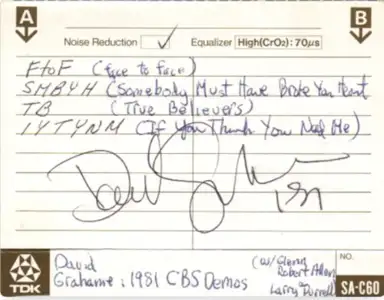 A
B
Noise Reduction ✓ Equalizer High(CrO2): 70µs
FtoF (face to face)
SMBYH (Somebody Must Have Broke Your Heart
TB (True Believers)
IYTYNM (If You Think You Need Me)
David
Grahame: 1981 CBS Demos
(w/ Glenn
Robert Allen
Larry Durrell
TDK
NO.
SA-C60